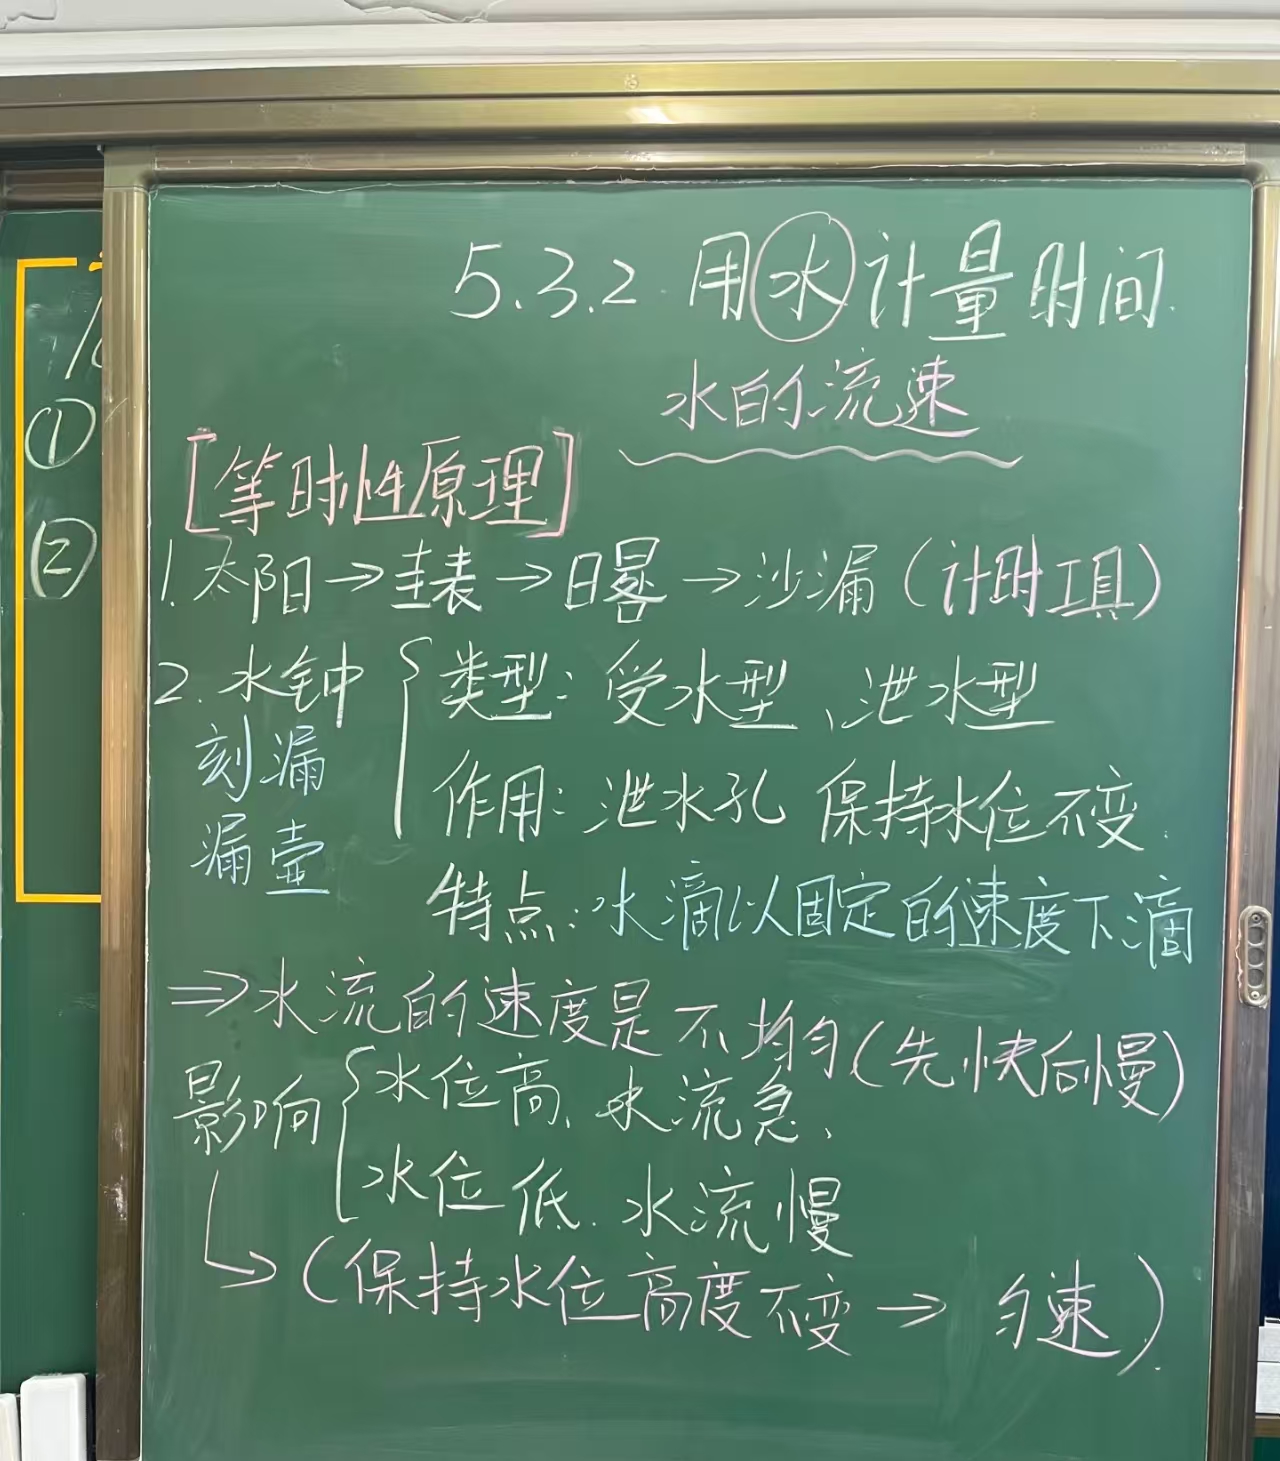 5.3.2 用水计量时间
水的流速
[等时性原理]
1. 太阳→圭表→日晷→沙漏(计时工具)
2. 水钟
刻漏
漏壶
类型: 受水型、泄水型
作用: 泄水孔 保持水位不变.
特点: 水滴以固定的速度下滴
⇒水流的速度是不均匀(先快后慢)
影响
水位高、水流急、
水位低. 水流慢
↳(保持水位高度不变→匀速)
①
②